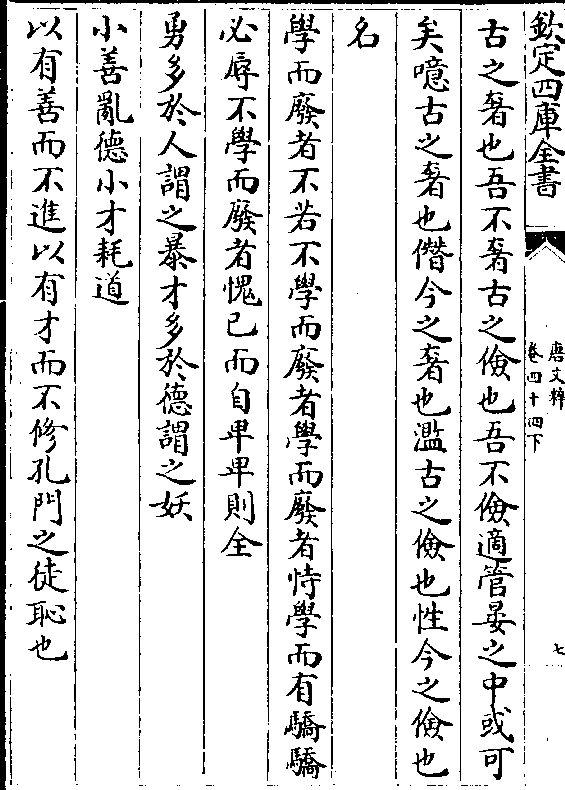 欽定四庫全書
唐文粹
卷四十四下
七
古之奢也吾不奢古之儉也吾不儉適管晏之中或可
矣噫古之奢也僭今之奢也濫古之儉也性今之儉也
名
學而廢者不若不學而廢者學而廢者恃學而有驕驕
必辱不學而廢者愧己而自卑卑則全
勇多於人謂之暴才多於德謂之妖
小善亂德小才耗道
以有善而不進以有才而不修孔門之徒恥也